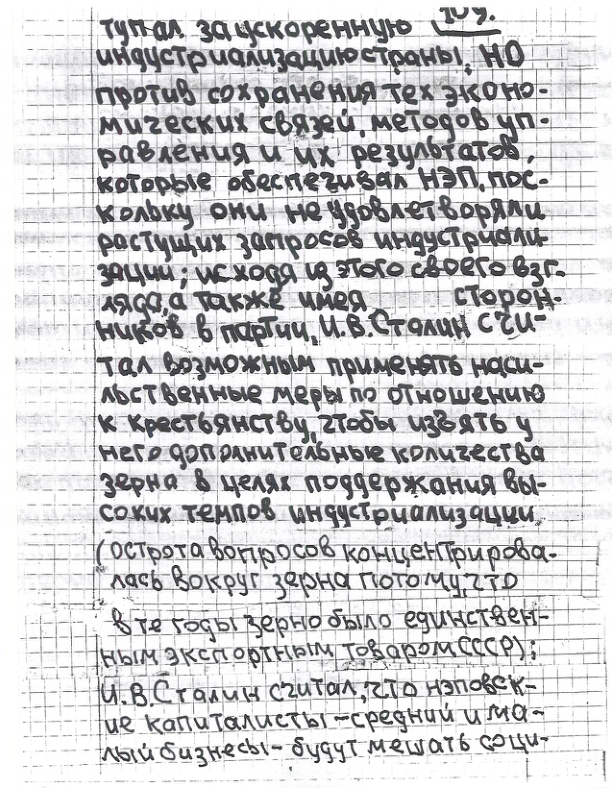 109.
тупал за ускоренную
индустриализацию страны, но
против сохранения тех эконо-
мических связей, методов уп-
равления и их результатов,
которые обеспечивал НЭП, пос-
кольку они не удовлетворяли
растущих запросов индустриали-
зации; исходя из этого своего взг-
ляда, а также имея сторон-
ников в партии, И.В.Сталин счи-
тал возможным применять наси-
льственные меры по отношению
к крестьянству, чтобы изъять у
него дополнительные количества
зерна в целях поддержания вы-
соких темпов индустриализации
(острота вопросов концентрирова-
лась вокруг зерна потому, что
в те годы зерно было единствен-
ным экспортным товаром СССР);
И.В.Сталин считал, что нэповск-
ие капиталисты – средний и ма-
лый бизнесы – будут мешать соци-